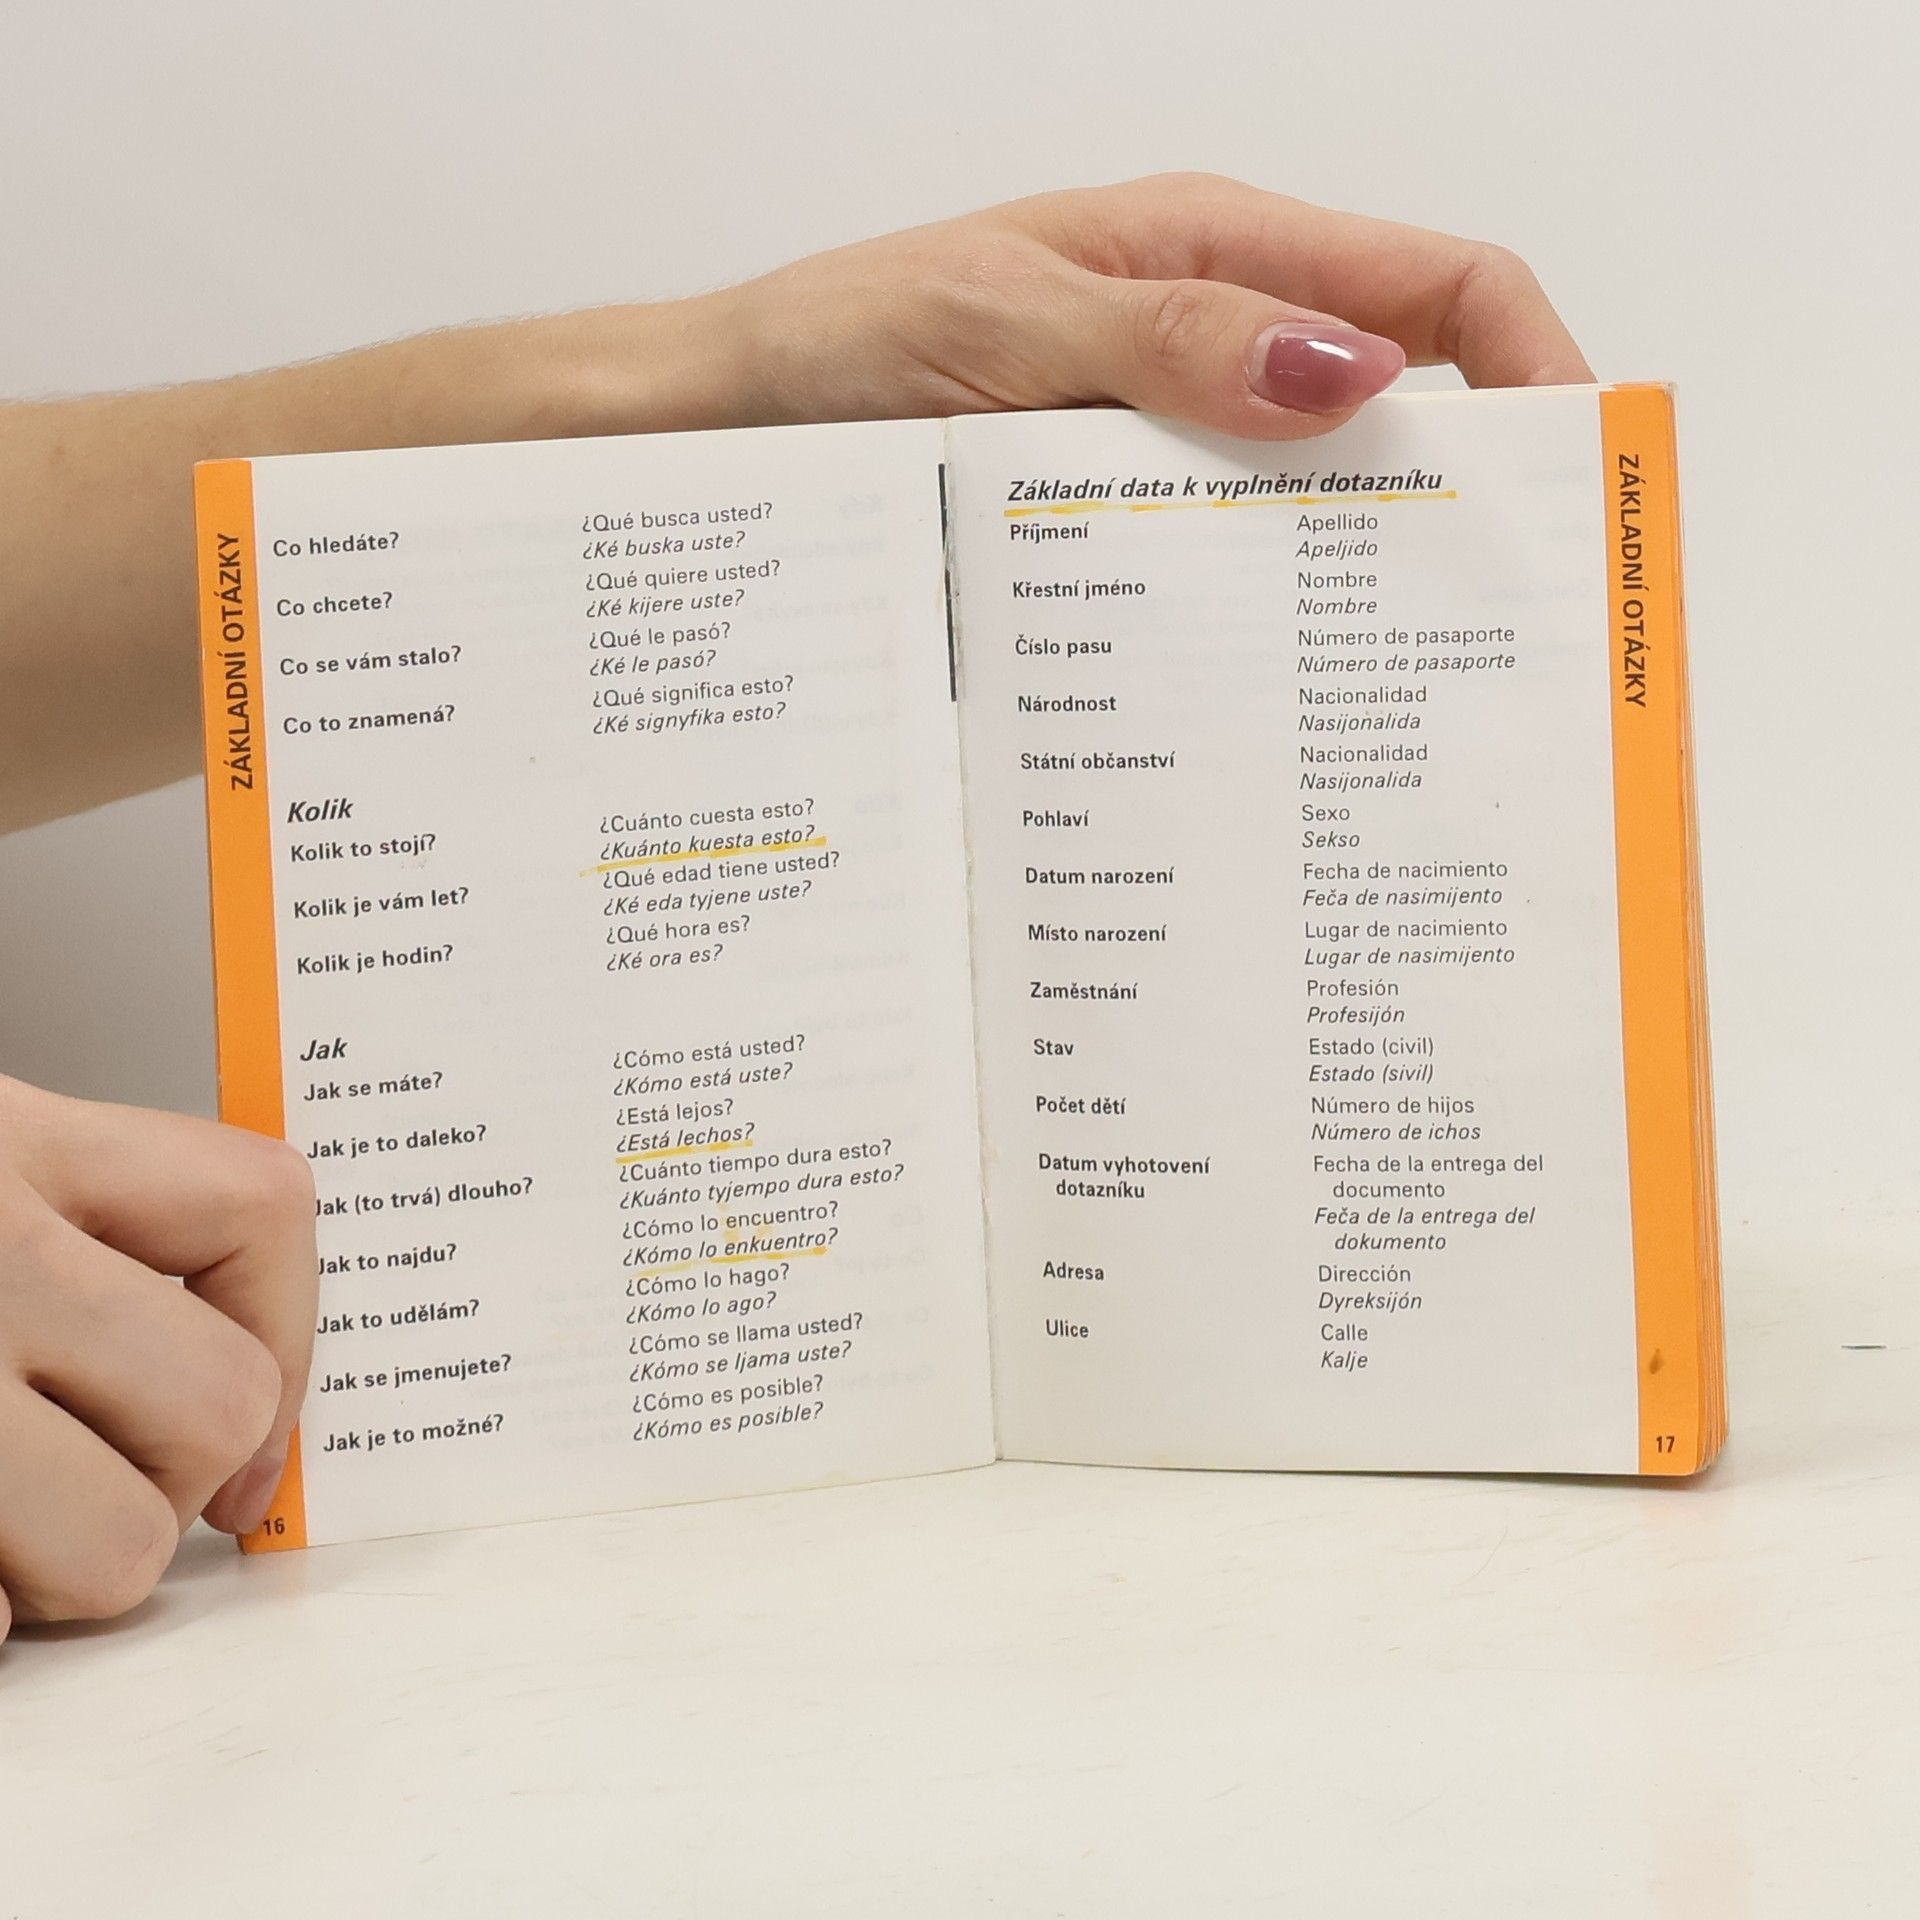 ZÁKLADNÍ OTÁZKY
Co hledáte?
¿Qué busca usted?
¿Ké buska uste?
Co chcete?
¿Qué quiere usted?
¿Ké kijere uste?
Co se vám stalo?
¿Qué le pasó?
¿Ké le pasó?
Co to znamená?
¿Qué significa esto?
¿Ké signyfika esto?
Kolik
Kolik to stojí?
¿Cuánto cuesta esto?
¿Kuánto kuesta esto?
Kolik je vám let?
¿Qué edad tiene usted?
¿Ké eda tyjene uste?
Kolik je hodin?
¿Qué hora es?
¿Ké ora es?
Jak
Jak se máte?
¿Cómo está usted?
¿Kómo está uste?
Jak je to daleko?
¿Está lejos?
¿Está lechos?
Jak (to trvá) dlouho?
¿Cuánto tiempo dura esto?
¿Kuánto tyjempo dura esto?
Jak to najdu?
¿Cómo lo encuentro?
¿Kómo lo enkuentro?
Jak to udělám?
¿Cómo lo hago?
¿Kómo lo ago?
Jak se jmenujete?
¿Cómo se llama usted?
¿Kómo se ljama uste?
Jak je to možné?
¿Cómo es posible?
¿Kómo es posible?
16
Základní data k vyplnění dotazníku
Příjmení
Apellido
Apeljido
Křestní jméno
Nombre
Nombre
Číslo pasu
Número de pasaporte
Número de pasaporte
Národnost
Nacionalidad
Nasijonalida
Státní občanství
Nacionalidad
Nasijonalida
Pohlaví
Sexo
Sekso
Datum narození
Fecha de nacimiento
Feča de nasimijento
Místo narození
Lugar de nacimiento
Lugar de nasimijento
Zaměstnání
Profesión
Profesijón
Stav
Estado (civil)
Estado (sivil)
Počet dětí
Número de hijos
Número de ichos
Datum vyhotovení
dotazníku
Fecha de la entrega del
documento
Feča de la entrega del
dokumento
Adresa
Dirección
Dyreksijón
Ulice
Calle
Kalje
ZÁKLADNÍ OTÁZKY
17